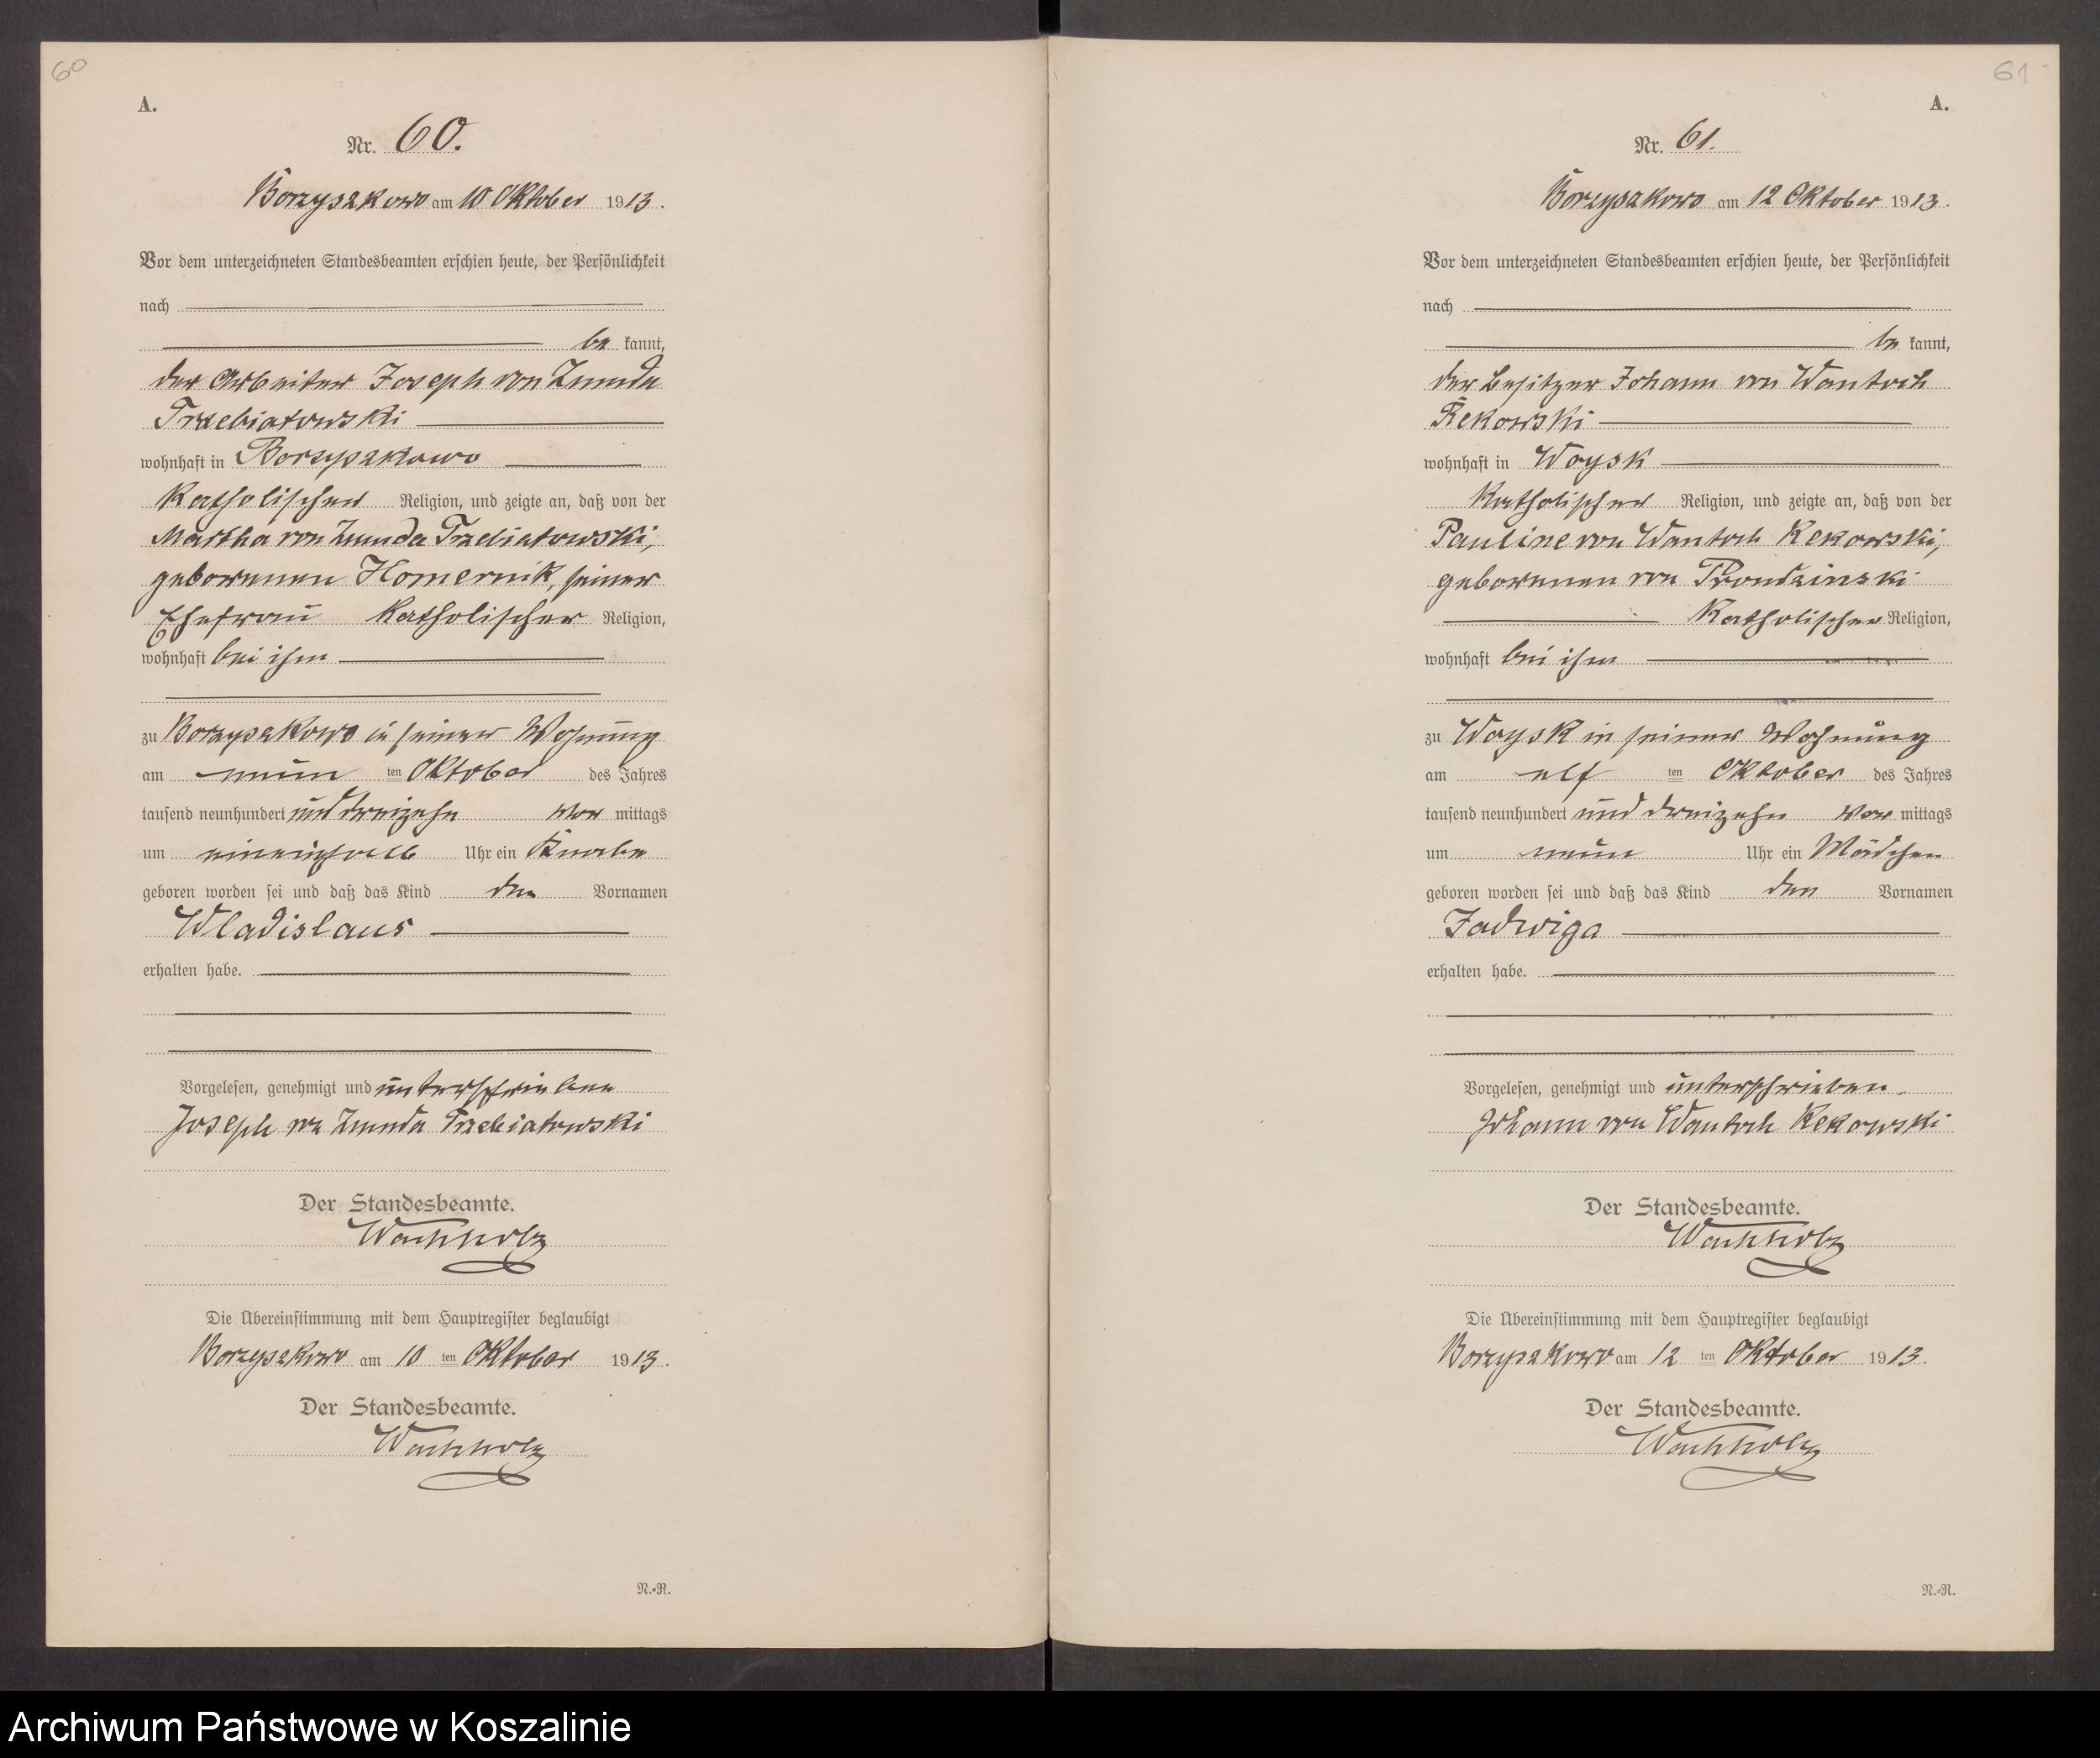 60
A.
Nr. 60.
Borzyszkowo am 10 Oktober 1913.
Vor dem unterzeichneten Standesbeamten erschien heute, der Persönlichkeit
nach
be kannt,
der Arbeiter Joseph von Zmuda
Trzebiatowski
wohnhaft in Borzyszkowo
Katholischer Religion, und zeigte an, daß von der
Martha von Zmuda Trzebiatowski,
geborenen Homernik, seiner
Ehefrau Katholischer Religion,
wohnhaft bei ihm
zu Borzyszkowo in seiner Wohnung
am neun ten Oktober des Jahres
tausend neunhundert und dreizehn vor mittags
um eineinhalb Uhr ein Knabe
geboren worden sei und daß das Kind den Vornamen
Wladislaus
erhalten habe.
Vorgelesen, genehmigt und unterschrieben
Joseph von Zmuda Trzebiatowski
Der Standesbeamte.
Wachholz
Die Übereinstimmung mit dem Hauptregister beglaubigt
Borzyszkowo am 10 ten Oktober 1913.
Der Standesbeamte.
Wachholz
N.-R.
61
A.
Nr. 61.
Borzyszkowo am 12 Oktober 1913.
Vor dem unterzeichneten Standesbeamten erschien heute, der Persönlichkeit
nach
be kannt,
der Besitzer Johann von Wantoch
Rekowski
wohnhaft in Woysk
Katholischer Religion, und zeigte an, daß von der
Pauline von Wantoch Rekowski,
geborenen von Prondzinski
Katholischer Religion,
wohnhaft bei ihm
zu Woysk in seiner Wohnung
am elf ten Oktober des Jahres
tausend neunhundert und dreizehn vor mittags
um neun Uhr ein Mädchen
geboren worden sei und daß das Kind den Vornamen
Jadwiga
erhalten habe.
Vorgelesen, genehmigt und unterschrieben.
Johann von Wantoch Rekowski
Der Standesbeamte.
Wachholz
Die Übereinstimmung mit dem Hauptregister beglaubigt
Borzyszkowo am 12 ten Oktober 1913.
Der Standesbeamte.
Wachholz
N.-R.
Archiwum Państwowe w Koszalinie